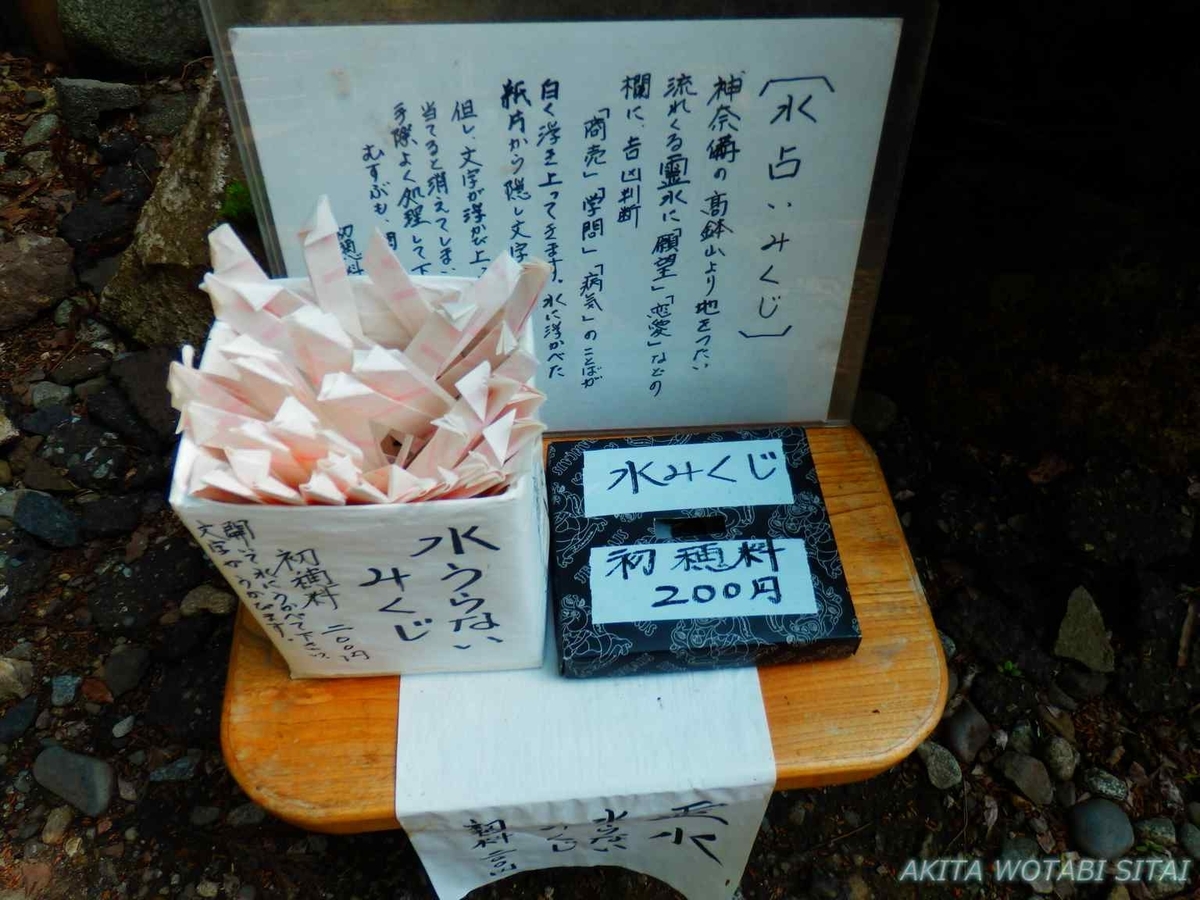 〔水占いみくじ〕
神奈備の高鉢山より地をつたい
流れくる霊水に「願望」「恋愛」などの
欄に、吉凶判断
「商売」「学問」「病気」のことばが
白く浮き上ってきます。水に浮かべた
紙片から隠し文字
但し、文字が浮かび上っ
当てると消えてしまい
手際よく処理して下
むすぶも、
初穂料
水うらない
みくじ
初穂料 二〇〇円
開いて水にうかべて下さい。
文字がうかびます。
水みくじ
初穂料
200円
水
水うらない
みくじ
AKITA WOTABI SITAI